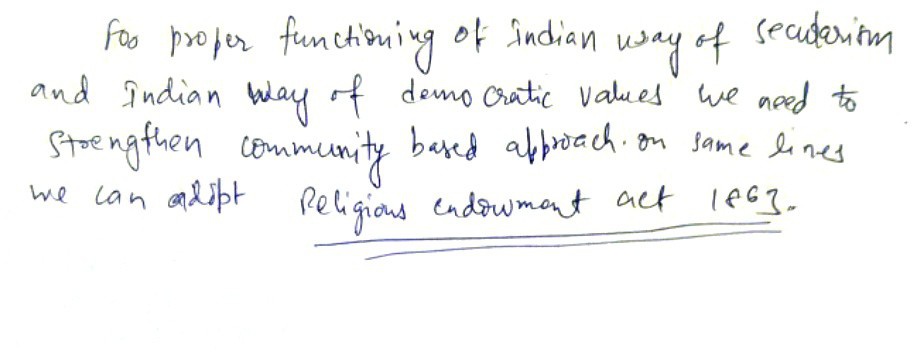 For proper functioning of Indian way of secularism
and Indian way of democratic values we need to
strengthen community based approach. on same lines
we can adopt Religious endowment act 1863.